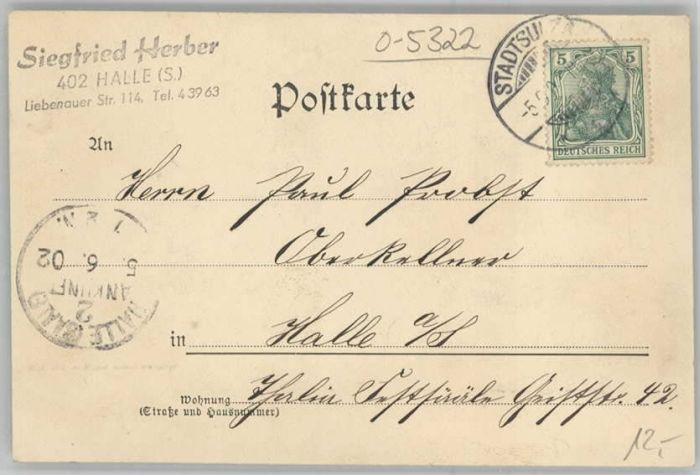 Siegfried Herber
402 HALLE (S.)
Liebenauer Str. 114, Tel. 43963
0-5322
STADTSULZA
5
5
DEUTSCHES REICH
Postkarte
An
Herrn Paul Probst
Oberkellner
in Halle a/S
Wohnung
(Straße und Hausnummer)
Thalia Festsääle Geiststr. 42.
5. 6. 02
ANKUNFT
2
HALLE (SAALE)
12,-